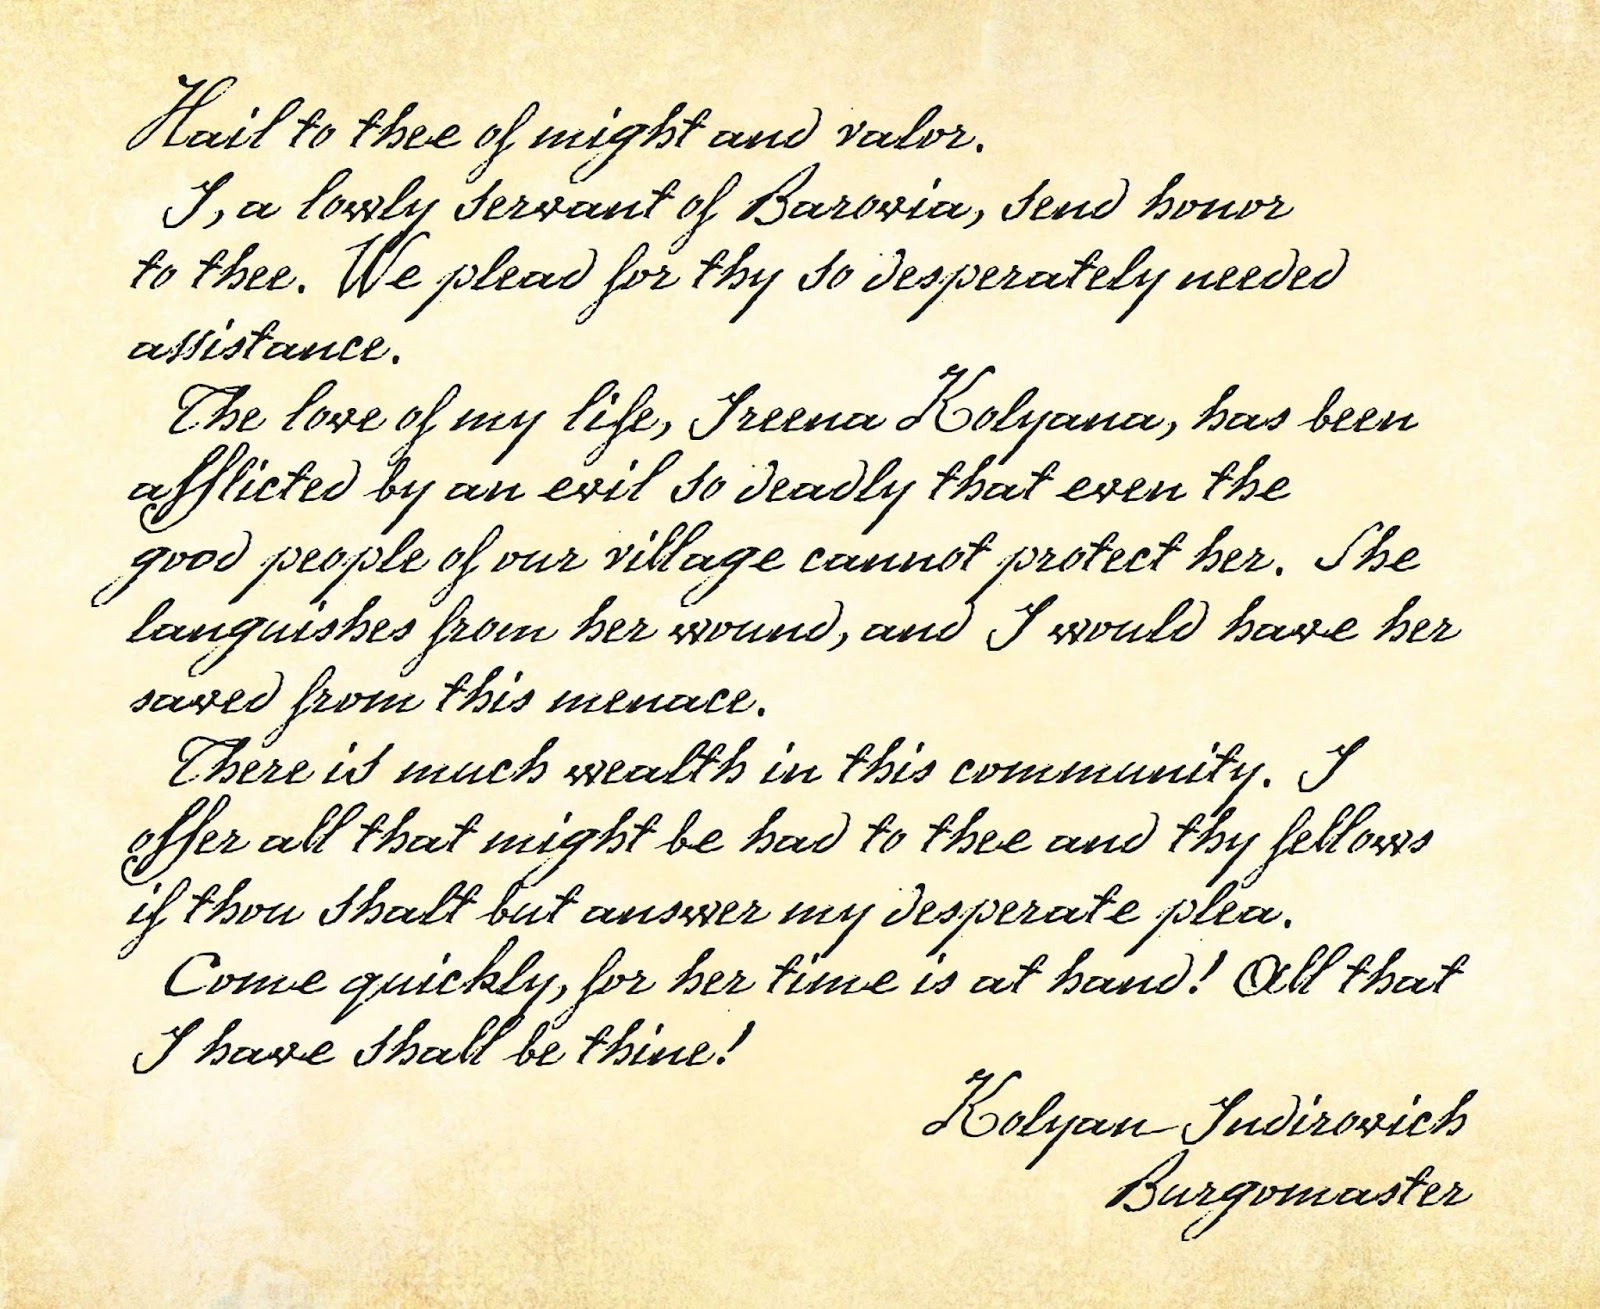 Hail to thee of might and valor.
I, a lowly servant of Barovia, send honor
to thee. We plead for thy so desperately needed
assistance.
The love of my life, Ireena Kolyana, has been
afflicted by an evil so deadly that even the
good people of our village cannot protect her. She
languishes from her wound, and I would have her
saved from this menace.
There is much wealth in this community. I
offer all that might be had to thee and thy fellows
if thou shalt but answer my desperate plea.
Come quickly, for her time is at hand! All that
I have shall be thine!
Kolyan Indirovich
Burgomaster